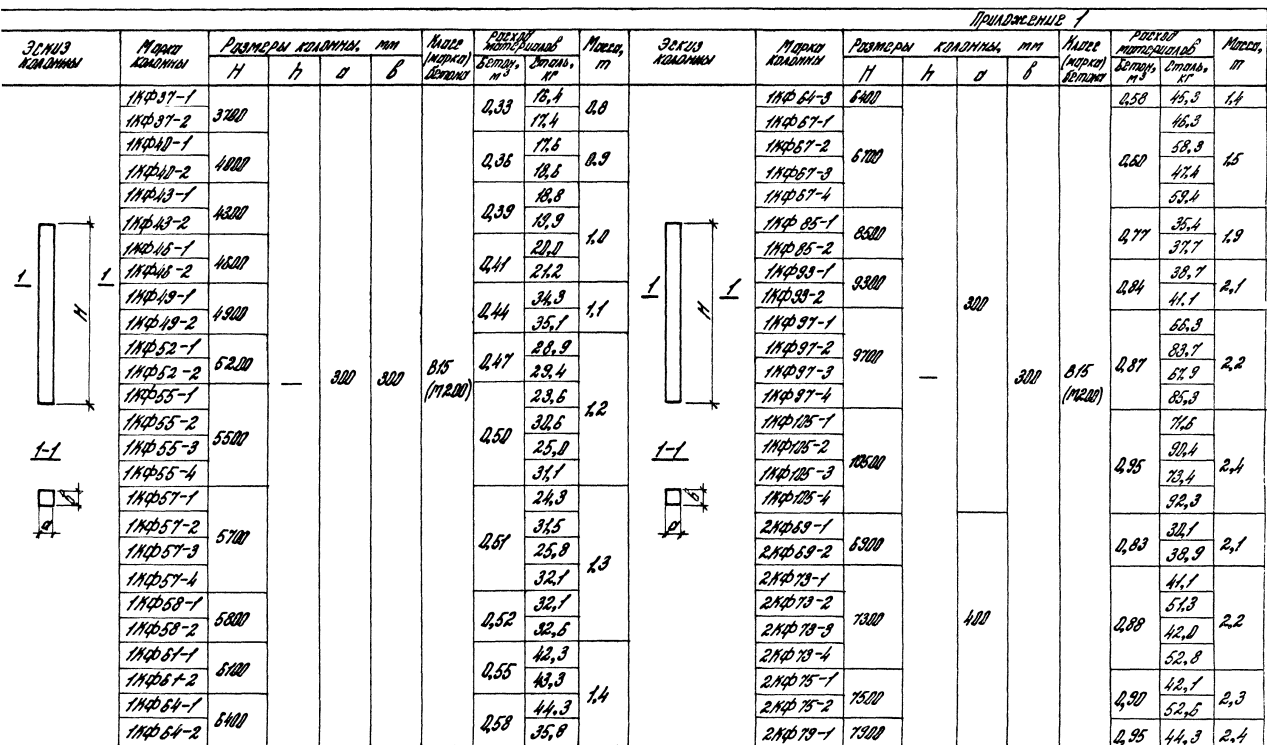 Приложение 1
Эскиз колонны | Марка колонны | Размеры колонны, мм | Класс (марка) бетона | Расход материалов | Масса, т
H | h | а | в | Бетон, м³ | Сталь, кг
1КФ37-1 | 3700 | — | 300 | 300 | В15 (М200) | 0,33 | 16,4 | 0,8
1КФ37-2 | 17,4
1КФ40-1 | 4000 | 0,36 | 17,6 | 0,9
1КФ40-2 | 18,6
1КФ43-1 | 4300 | 0,39 | 18,8 | 1,0
1КФ43-2 | 19,9
1КФ46-1 | 4600 | 0,41 | 20,0
1КФ46-2 | 21,2
1КФ49-1 | 4900 | 0,44 | 34,3 | 1,1
1КФ49-2 | 35,1
1КФ52-1 | 5200 | 0,47 | 28,9 | 1,2
1КФ52-2 | 29,4
1КФ55-1 | 5500 | 0,50 | 23,6
1КФ55-2 | 30,6
1КФ55-3 | 25,0
1КФ55-4 | 31,1
1КФ57-1 | 5700 | 0,51 | 24,3 | 1,3
1КФ57-2 | 31,5
1КФ57-3 | 25,8
1КФ57-4 | 32,1
1КФ58-1 | 5800 | 0,52 | 32,1
1КФ58-2 | 32,6
1КФ61-1 | 6100 | 0,55 | 42,3 | 1,4
1КФ61-2 | 43,3
1КФ64-1 | 6400 | 0,58 | 44,3
1КФ64-2 | 35,8
1 1
H
1-1
а
в
Эскиз колонны | Марка колонны | Размеры колонны, мм | Класс (марка) бетона | Расход материалов | Масса, т
H | h | а | в | Бетон, м³ | Сталь, кг
1КФ64-3 | 6400 | — | 300 | 300 | В15 (М200) | 0,58 | 45,3 | 1,4
1КФ67-1 | 6700 | 0,60 | 46,3 | 1,5
1КФ67-2 | 58,3
1КФ67-3 | 47,4
1КФ67-4 | 59,4
1КФ85-1 | 8500 | 0,77 | 35,4 | 1,9
1КФ85-2 | 37,7
1КФ93-1 | 9300 | 0,84 | 38,7 | 2,1
1КФ93-2 | 41,1
1КФ97-1 | 9700 | 0,87 | 66,3 | 2,2
1КФ97-2 | 83,7
1КФ97-3 | 67,9
1КФ97-4 | 85,3
1КФ105-1 | 10500 | 0,95 | 71,6 | 2,4
1КФ105-2 | 90,4
1КФ105-3 | 73,4
1КФ105-4 | 92,3
2КФ69-1 | 6900 | 400 | 0,83 | 30,1 | 2,1
2КФ69-2 | 38,9
2КФ73-1 | 7300 | 0,88 | 41,1 | 2,2
2КФ73-2 | 51,3
2КФ73-3 | 42,0
2КФ73-4 | 52,8
2КФ75-1 | 7500 | 0,90 | 42,1 | 2,3
2КФ75-2 | 52,6
2КФ79-1 | 7900 | 0,95 | 44,3 | 2,4
1 1
H
1-1
а
в